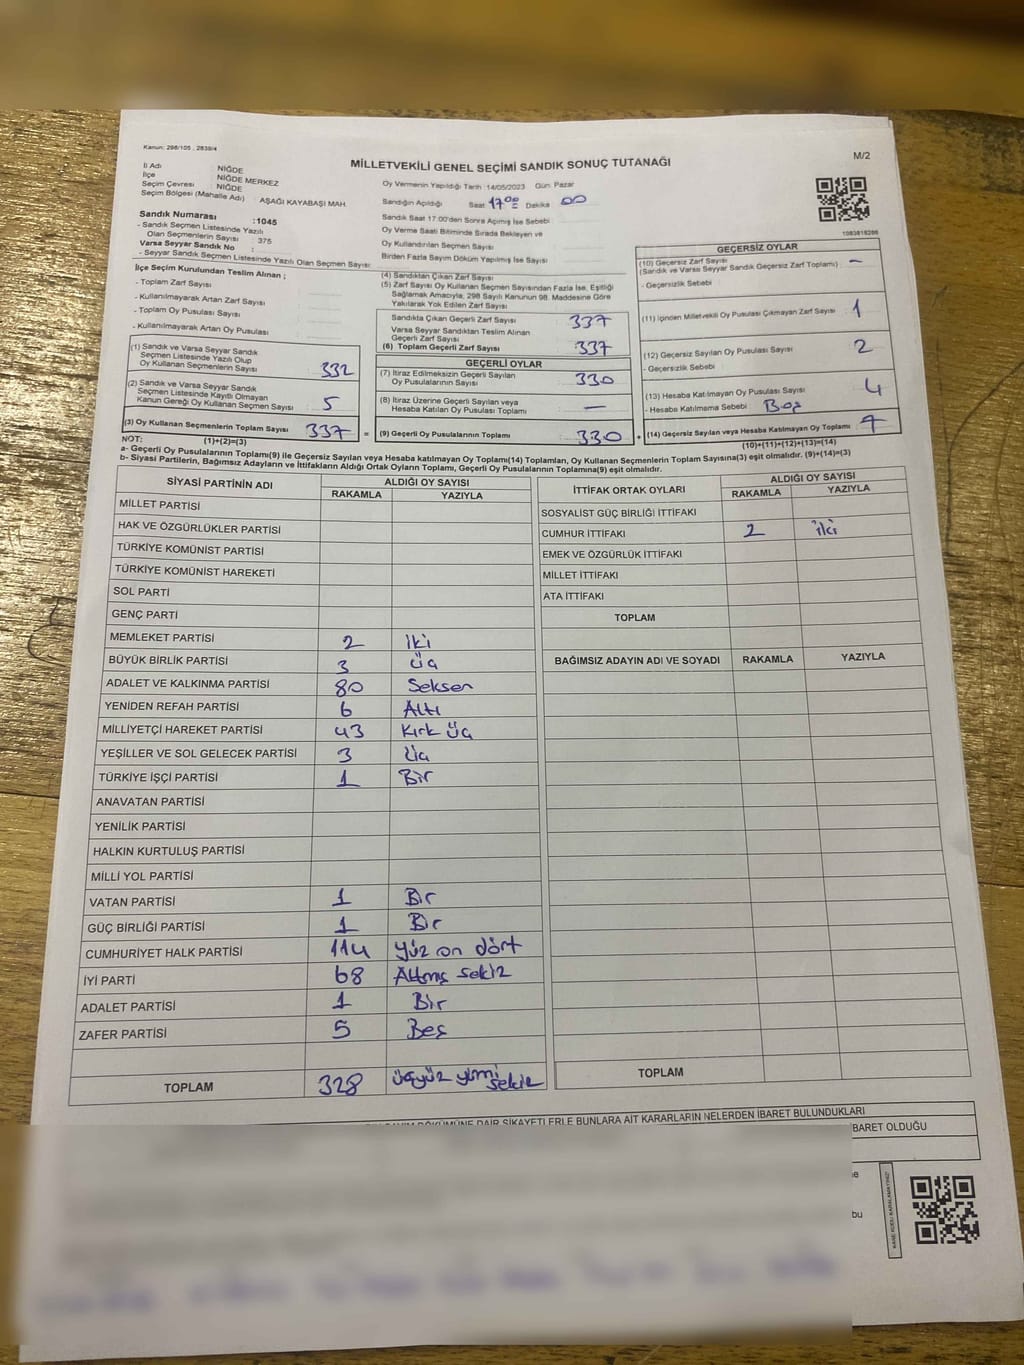 Kanun: 298/105 , 2839/4
MİLLETVEKİLİ GENEL SEÇİMİ SANDIK SONUÇ TUTANAĞI
M/2
İl Adı : NİĞDE
İlçe : NİĞDE MERKEZ
Seçim Çevresi : NİĞDE
Seçim Bölgesi (Mahalle Adı) : AŞAĞI KAYABAŞI MAH.
Sandık Numarası :1045
- Sandık Seçmen Listesinde Yazılı
Olan Seçmenlerin Sayısı : 375
Varsa Seyyar Sandık No :
- Seyyar Sandık Seçmen Listesinde Yazılı Olan Seçmen Sayısı:
Oy Vermenin Yapıldığı Tarih :14/05/2023 Gün: Pazar
Sandığın Açıldığı Saat 17:00 Dakika 00
Sandık Saat 17:00'den Sonra Açılmış İse Sebebi
Oy Verme Saati Bitiminde Sırada Bekleyen ve
Oy Kullandırılan Seçmen Sayısı
Birden Fazla Sayım Döküm Yapılmış İse Sayısı
İlçe Seçim Kurulundan Teslim Alınan ;
- Toplam Zarf Sayısı
- Kullanılmayarak Artan Zarf Sayısı
- Toplam Oy Pusulası Sayısı
- Kullanılmayarak Artan Oy Pusulası
(1) Sandık ve Varsa Seyyar Sandık
Seçmen Listesinde Yazılı Olup
Oy Kullanan Seçmenlerin Sayısı 332
(2) Sandık ve Varsa Seyyar Sandık
Seçmen Listesinde Kayıtlı Olmayan
Kanun Gereği Oy Kullanan Seçmen Sayısı 5
(3) Oy Kullanan Seçmenlerin Toplam Sayısı 337
(4) Sandıktan Çıkan Zarf Sayısı
(5) Zarf Sayısı Oy Kullanan Seçmen Sayısından Fazla İse, Eşitliği
Sağlamak Amacıyla, 298 Sayılı Kanunun 98. Maddesine Göre
Yakılarak Yok Edilen Zarf Sayısı
Sandıkta Çıkan Geçerli Zarf Sayısı 337
Varsa Seyyar Sandıktan Teslim Alınan
Geçerli Zarf Sayısı
(6) Toplam Geçerli Zarf Sayısı 337
GEÇERLİ OYLAR
(7) İtiraz Edilmeksizin Geçerli Sayılan
Oy Pusulalarının Sayısı 330
(8) İtiraz Üzerine Geçerli Sayılan veya
Hesaba Katılan Oy Pusulası Toplamı —
= (9) Geçerli Oy Pusulalarının Toplamı 330 +
1083818286
GEÇERSİZ OYLAR
(10) Geçersiz Zarf Sayısı
(Sandık ve Varsa Seyyar Sandık Geçersiz Zarf Toplamı) -
- Geçersizlik Sebebi
(11) İçinden Milletvekili Oy Pusulası Çıkmayan Zarf Sayısı 1
(12) Geçersiz Sayılan Oy Pusulası Sayısı 2
- Geçersizlik Sebebi
(13) Hesaba Katılmayan Oy Pusulası Sayısı 4
- Hesaba Katılmama Sebebi Boş
(14) Geçersiz Sayılan veya Hesaba Katılmayan Oy Toplamı 7
NOT: (1)+(2)=(3)
(10)+(11)+(12)+(13)=(14)
a- Geçerli Oy Pusulalarının Toplamı(9) ile Geçersiz Sayılan veya Hesaba Katılmayan Oy Toplamı(14) Toplamları, Oy Kullanan Seçmenlerin Toplam Sayısına(3) eşit olmalıdır. (9)+(14)=(3)
b- Siyasi Partilerin, Bağımsız Adayların ve İttifakların Aldığı Ortak Oyların Toplamı, Geçerli Oy Pusulalarının Toplamına(9) eşit olmalıdır.
SİYASİ PARTİNİN ADI ALDIĞI OY SAYISI
RAKAMLA YAZIYLA
MİLLET PARTİSİ
HAK VE ÖZGÜRLÜKLER PARTİSİ
TÜRKİYE KOMÜNİST PARTİSİ
TÜRKİYE KOMÜNİST HAREKETİ
SOL PARTİ
GENÇ PARTİ
MEMLEKET PARTİSİ 2 iki
BÜYÜK BİRLİK PARTİSİ 3 üç
ADALET VE KALKINMA PARTİSİ 80 Seksen
YENİDEN REFAH PARTİSİ 6 Altı
MİLLİYETÇİ HAREKET PARTİSİ 43 Kırk üç
YEŞİLLER VE SOL GELECEK PARTİSİ 3 Üç
TÜRKİYE İŞÇİ PARTİSİ 1 Bir
ANAVATAN PARTİSİ
YENİLİK PARTİSİ
HALKIN KURTULUŞ PARTİSİ
MİLLİ YOL PARTİSİ
VATAN PARTİSİ 1 Bir
GÜÇ BİRLİĞİ PARTİSİ 1 Bir
CUMHURİYET HALK PARTİSİ 114 yüz on dört
İYİ PARTİ 68 Altmış sekiz
ADALET PARTİSİ 1 Bir
ZAFER PARTİSİ 5 Beş
TOPLAM 328 üçyüz yirmi sekiz
İTTİFAK ORTAK OYLARI ALDIĞI OY SAYISI
RAKAMLA YAZIYLA
SOSYALİST GÜÇ BİRLİĞİ İTTİFAKI
CUMHUR İTTİFAKI 2 iki
EMEK VE ÖZGÜRLÜK İTTİFAKI
MİLLET İTTİFAKI
ATA İTTİFAKI
TOPLAM
BAĞIMSIZ ADAYIN ADI VE SOYADI RAKAMLA YAZIYLA
TOPLAM
DÖKÜMÜNE DAİR ŞİKAYETLERLE BUNLARA AİT KARARLARIN NELERDEN İBARET BULUNDUKLARI
İBARET OLDUĞU